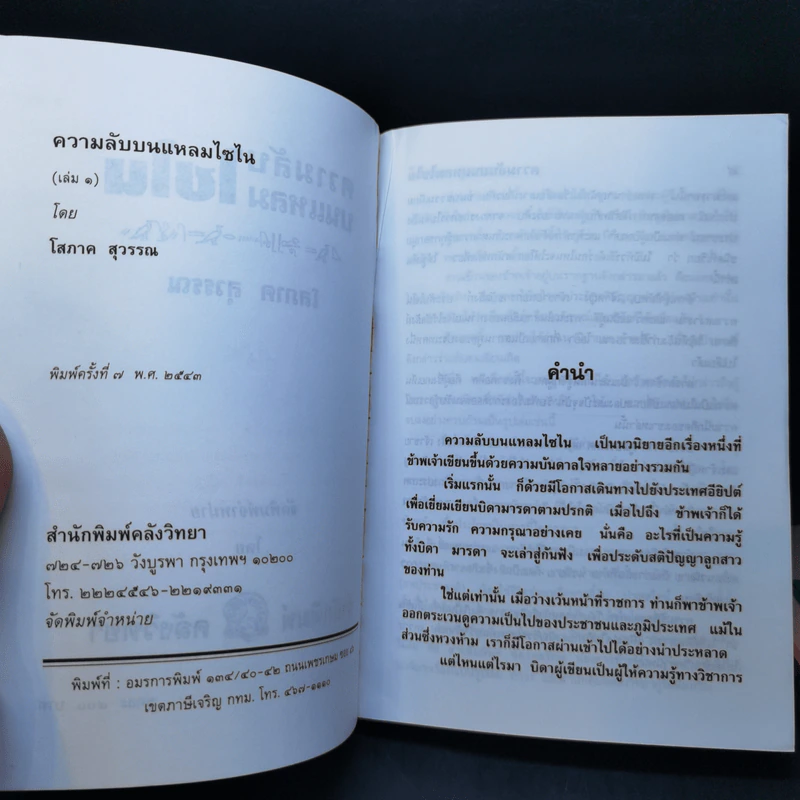 ความลับบนแหลมไซไน
(เล่ม ๑)
โดย
โสภาค สุวรรณ
พิมพ์ครั้งที่ ๗ พ.ศ. ๒๕๔๓
สำนักพิมพ์คลังวิทยา
๗๒๔-๗๒๖ วังบูรพา กรุงเทพฯ ๑๐๒๐๐
โทร. ๒๒๒๔๕๔๖-๒๒๑๙๓๓๑
จัดพิมพ์จำหน่าย
พิมพ์ที่ : อมรการพิมพ์ ๑๓๔/๔๐-๔๒ ถนนเพชรเกษม ซอย
เขตภาษีเจริญ กทม. โทร. ๔๖๗-๑๑๑๐
คำนำ
ความลับบนแหลมไซไน เป็นนวนิยายอีกเรื่องหนึ่งที่
ข้าพเจ้าเขียนขึ้นด้วยความบันดาลใจหลายอย่างรวมกัน
เริ่มแรกนั้น ก็ด้วยมีโอกาสเดินทางไปยังประเทศอียิปต์
เพื่อเยี่ยมเยียนบิดามารดาตามปรกติ เมื่อไปถึง ข้าพเจ้าก็ได้
รับความรัก ความกรุณาอย่างเคย นั่นคือ อะไรที่เป็นความรู้
ทั้งบิดา มารดา จะเล่าสู่กันฟัง เพื่อประดับสติปัญญาลูกสาว
ของท่าน
ใช่แต่เท่านั้น เมื่อว่างเว้นหน้าที่ราชการ ท่านก็พาข้าพเจ้า
ออกตระเวนดูความเป็นไปของประชาชนและภูมิประเทศ แม้ใน
ส่วนซึ่งหวงห้าม เราก็มีโอกาสผ่านเข้าไปได้อย่างน่าประหลาด
แต่ไหนแต่ไรมา บิดาผู้เขียนเป็นผู้ให้ความรู้ทางวิชาการ